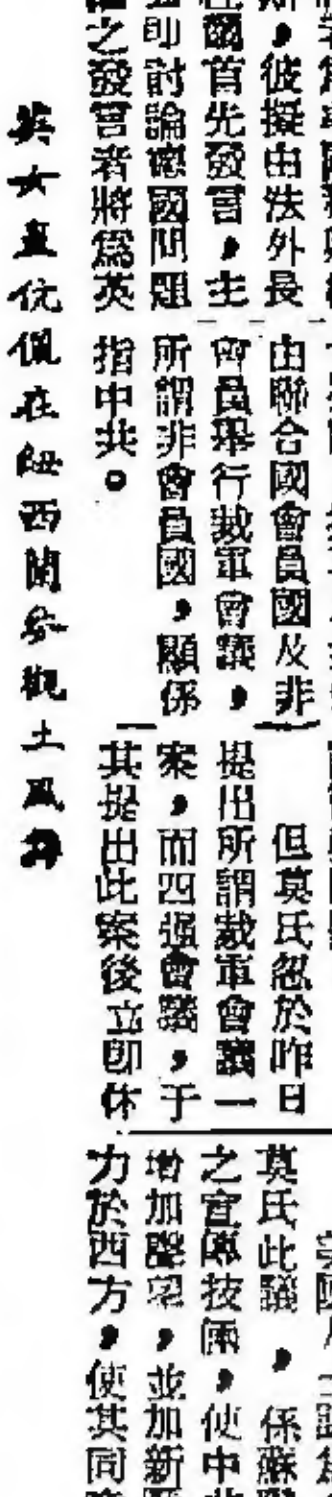 彼擬由法外長
爾首先發言，主
即討論德國問題
之發言者將爲英
由聯合國會員國及非
會員舉行裁軍會議，
所謂非會員國，顯係
指中共。
但莫氏忽於昨日
提出所謂裁軍會議一
案，而四强會議，于
其提出此案後立即休
莫氏此議，係蘇
之宣傳技倆，使中
增加聲望，並加新
力於西方，使其同
英女皇伉儷在紐西蘭參觀土風舞